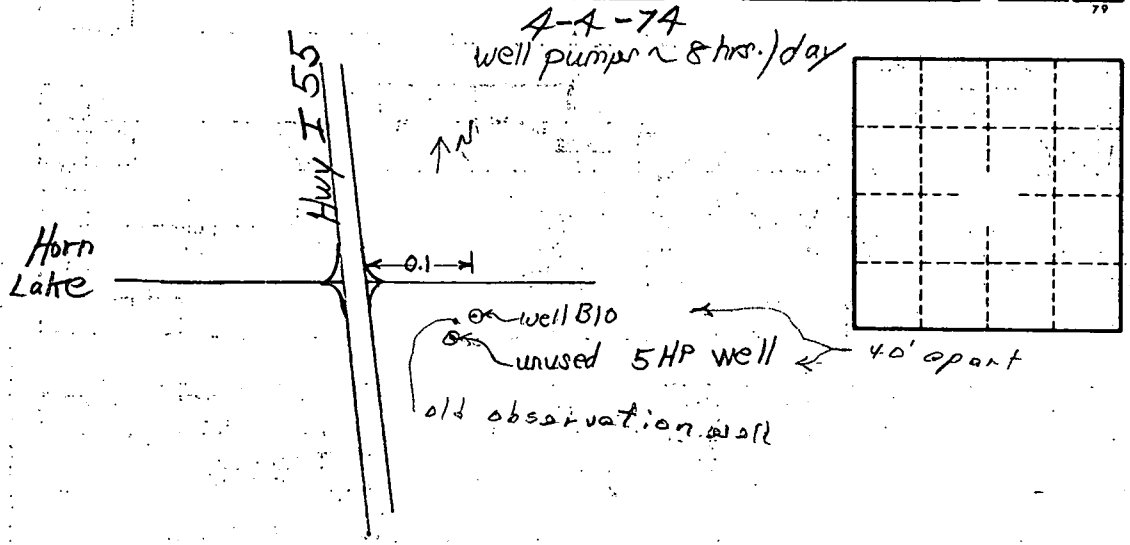 79
4-4-74
well pumps ~ 8 hrs./day
Hwy I 55
N
Horn
Lake
0.1
well B10
unused 5 HP well
40' apart
old observation well